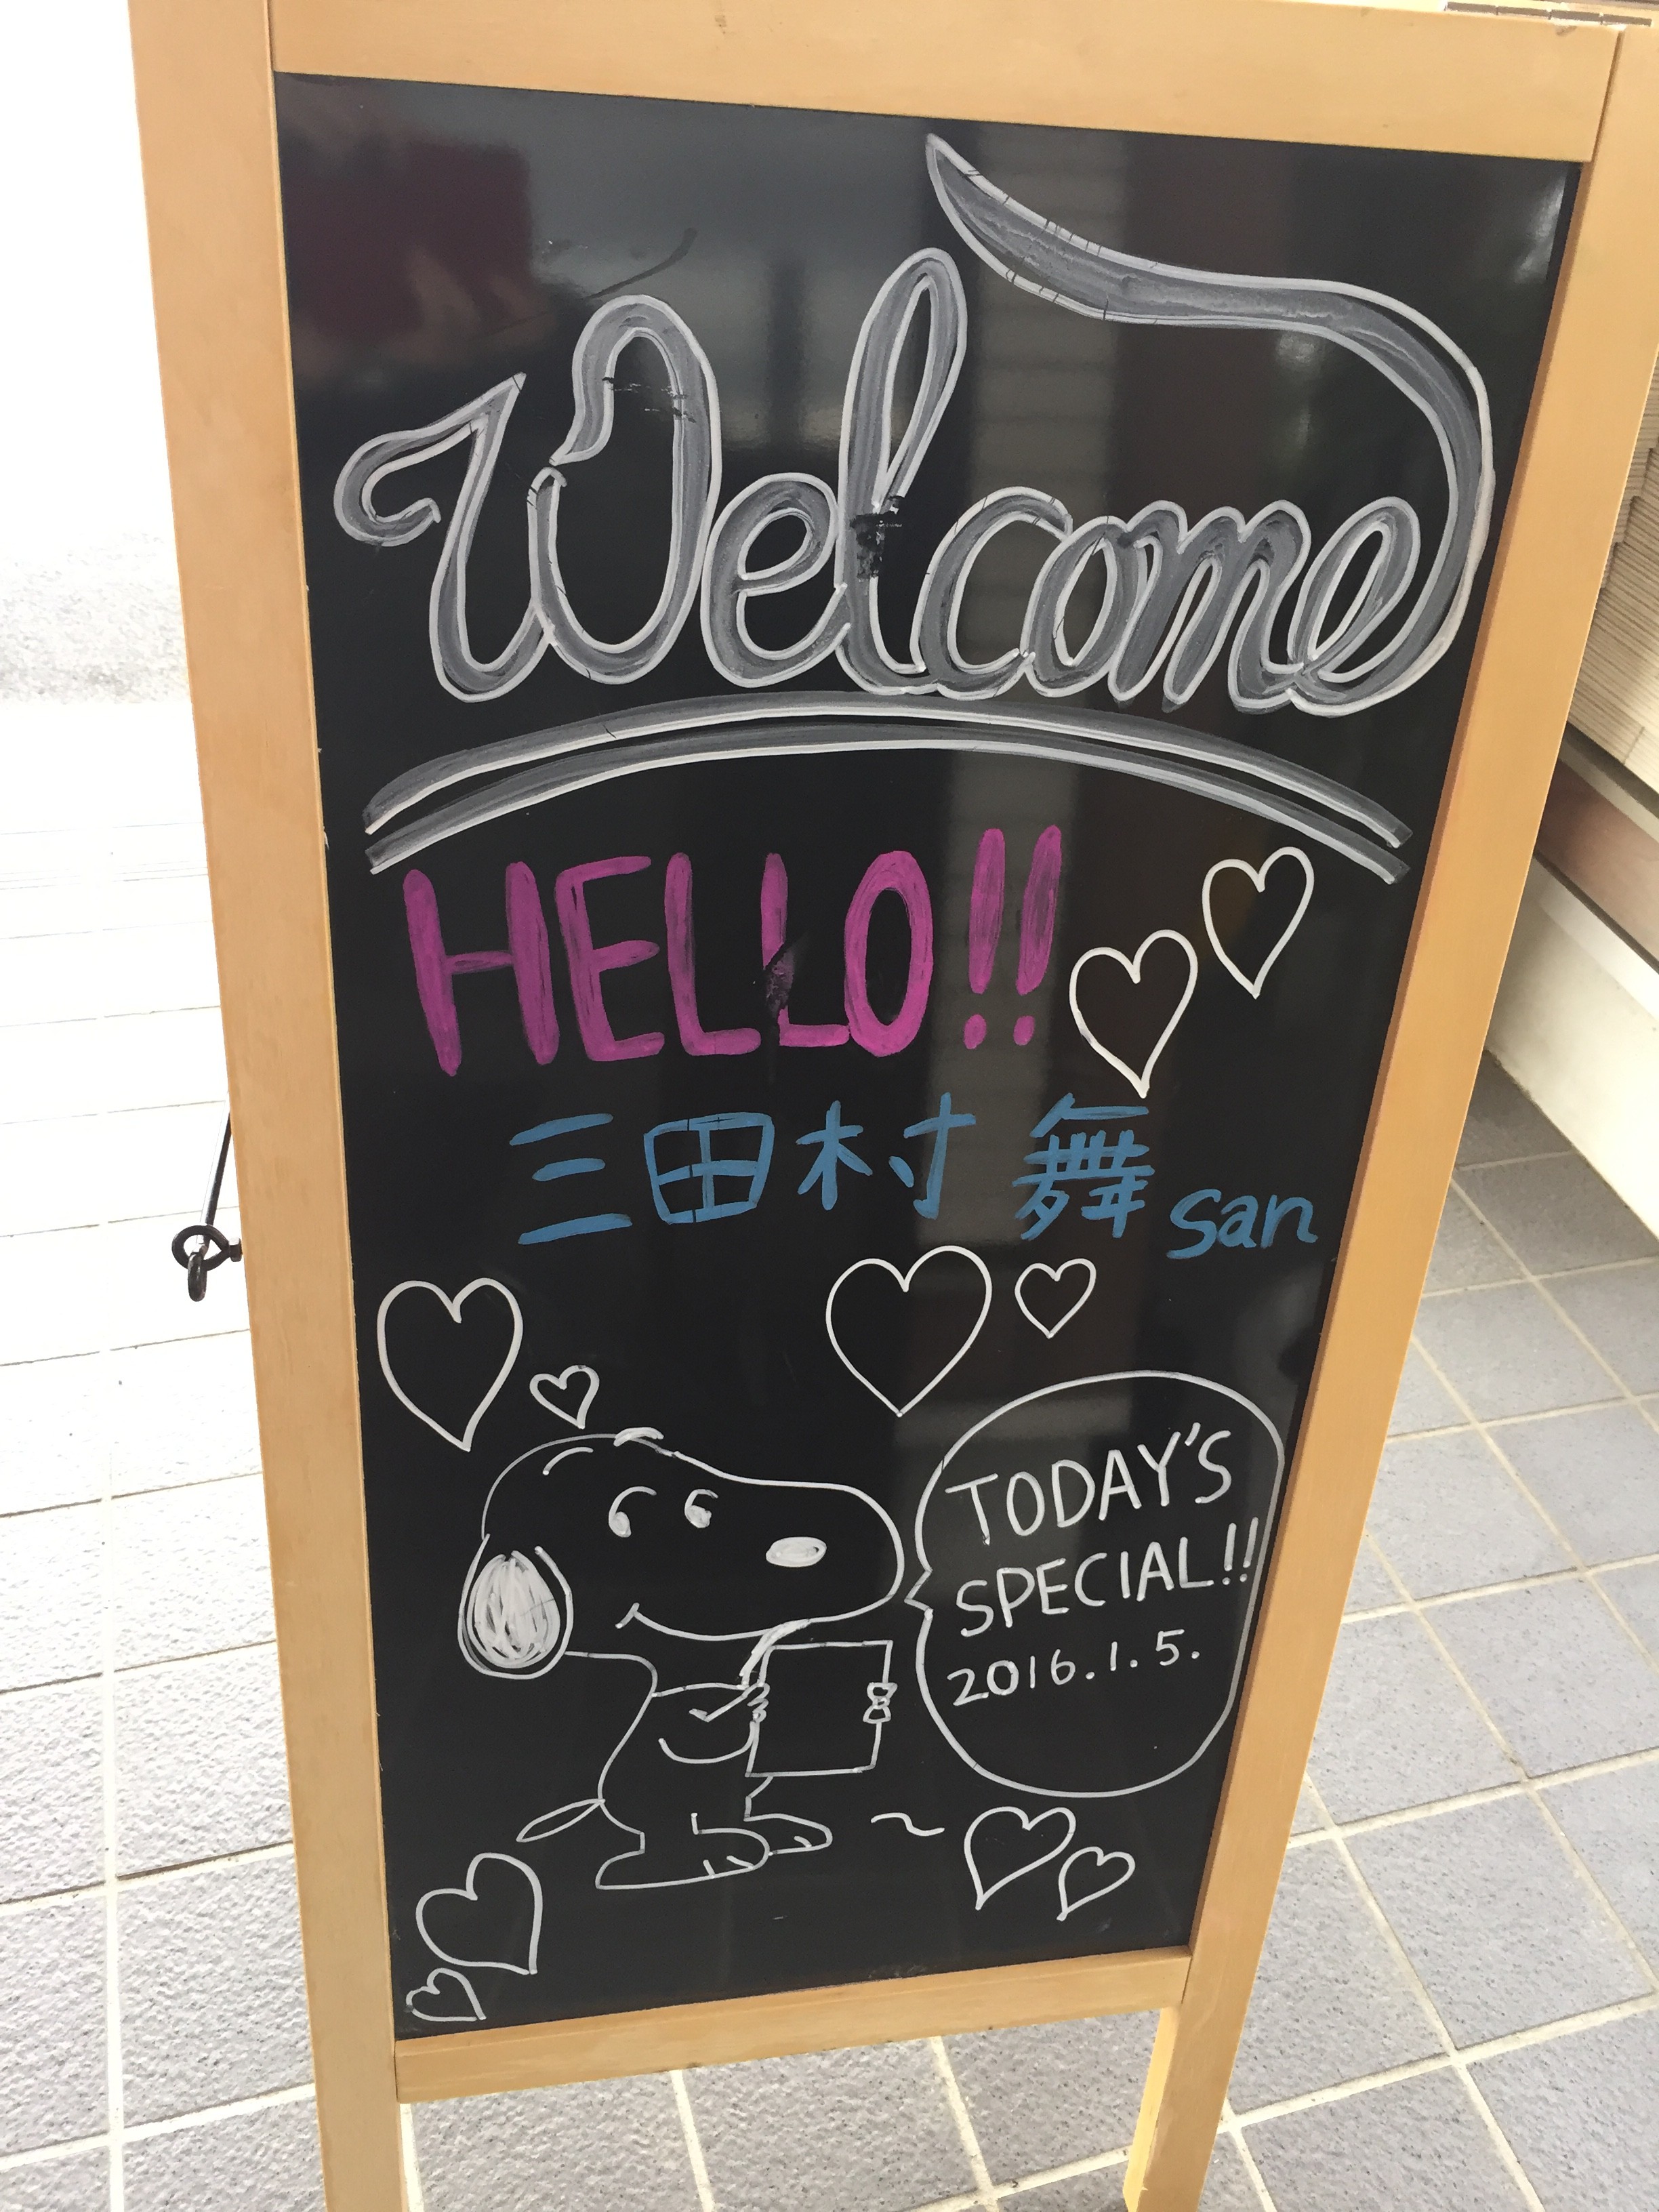 Welcome
HELLO!!
三田村 舞 san
TODAY'S
SPECIAL!!
2016.1.5.